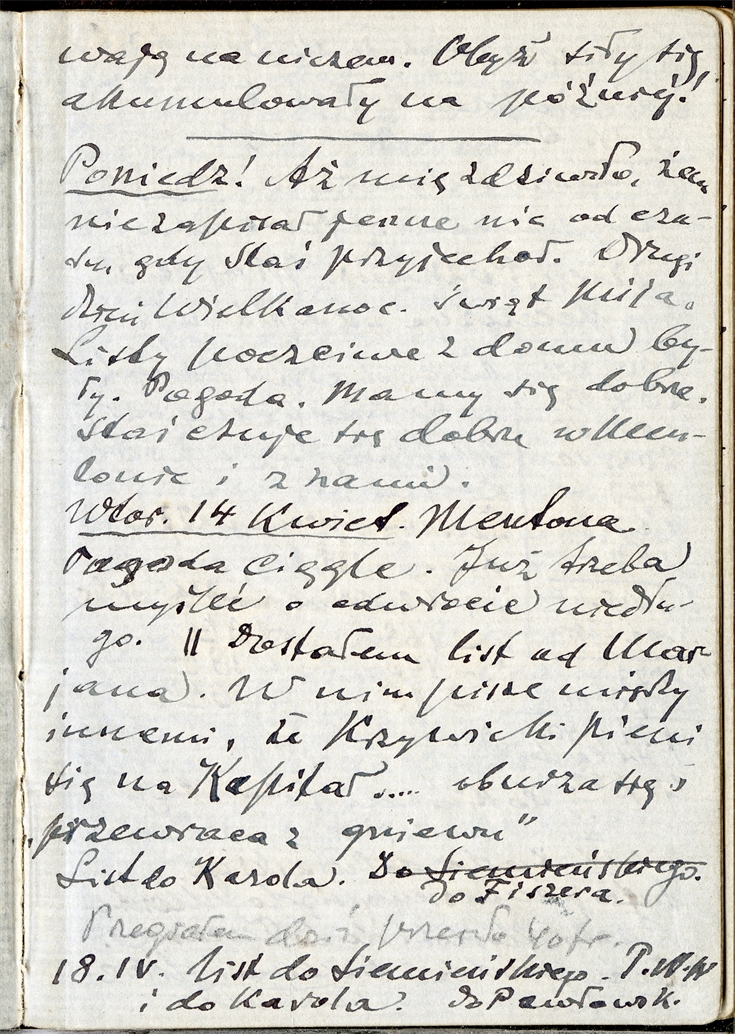 wają na niczem. Obyż siły się
akumulowały na później!
Poniedz! Aż mię zdziwiło, żem
nie zapisał pewne nic od cza-
su, gdy Staś przyjechał. Drugi
dzień Wielkanoc. Świąt mija.
Listy poczciwe z domu by-
ły. Pogoda. Mamy się dobrze.
Staś czuje się dobrze w Men-
tonie i z nami.
Wtor. 14 Kwiet. Mentona
Pogoda ciągle. Już trzeba
myśleć o odwrocie niedłu-
go. || Dostałem list od Mar-
jana. W nim pisze między
innemi, że Krzywicki pieni
się na Kapitał..... oburza się i
przewraca z gniewu"
List do Karola. Do Siemieńskiego.
do Fiszera.
Przegrałem dziś przeszło 40 fr.
18.IV. list do Siemieńskiego. P.W.W
i do Karola. Do Pawłowsk.